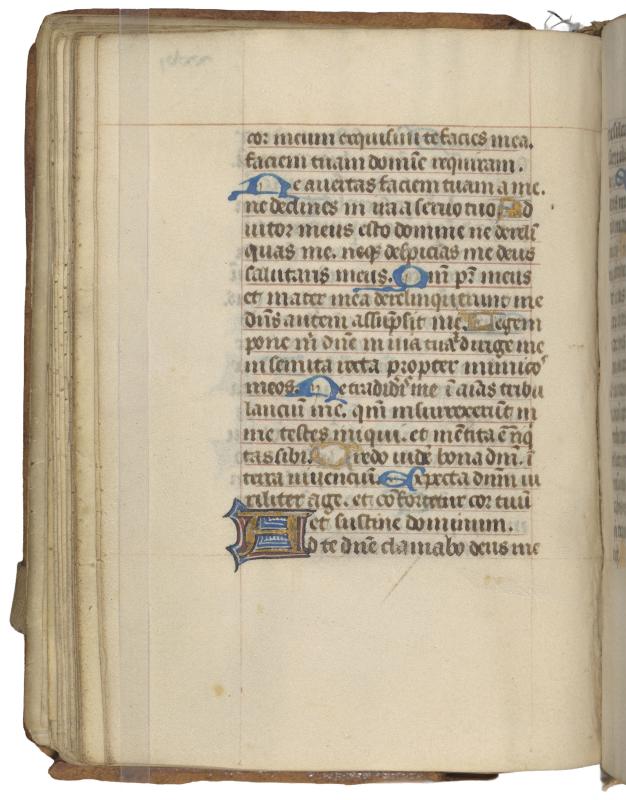 cor meum exquisiui te facies mea.
faciem tuam domīe requiram.
Ne auertas faciem tuam a me.
ne declines in ira a seruo tuo Ad
iutor meus esto domine ne dereli
quas me. neqȝ despicias me deus
salutaris meus. Qm̄ pr̄ meus
et mater mea derelinquerunt me
dn̄s autem assūpsit me. Legem
pone m̄ dn̄e in uia tua ⁊ dirige me
in semita recta propter inimicoˢ
meos. Ne tradidˢis me ī aīas tribu
lanciū me. qm̄ insurrexerūt in
me testes iniqui. et mētita ē īiq̄
tas sibi. Credo uidē bona dn̄i. ī
terra uiuenciū. Expecta dn̄m ui
riliter age. et cōfortetur cor tuū
et sustine dominum.
Ad te dn̄e clamabo deus me